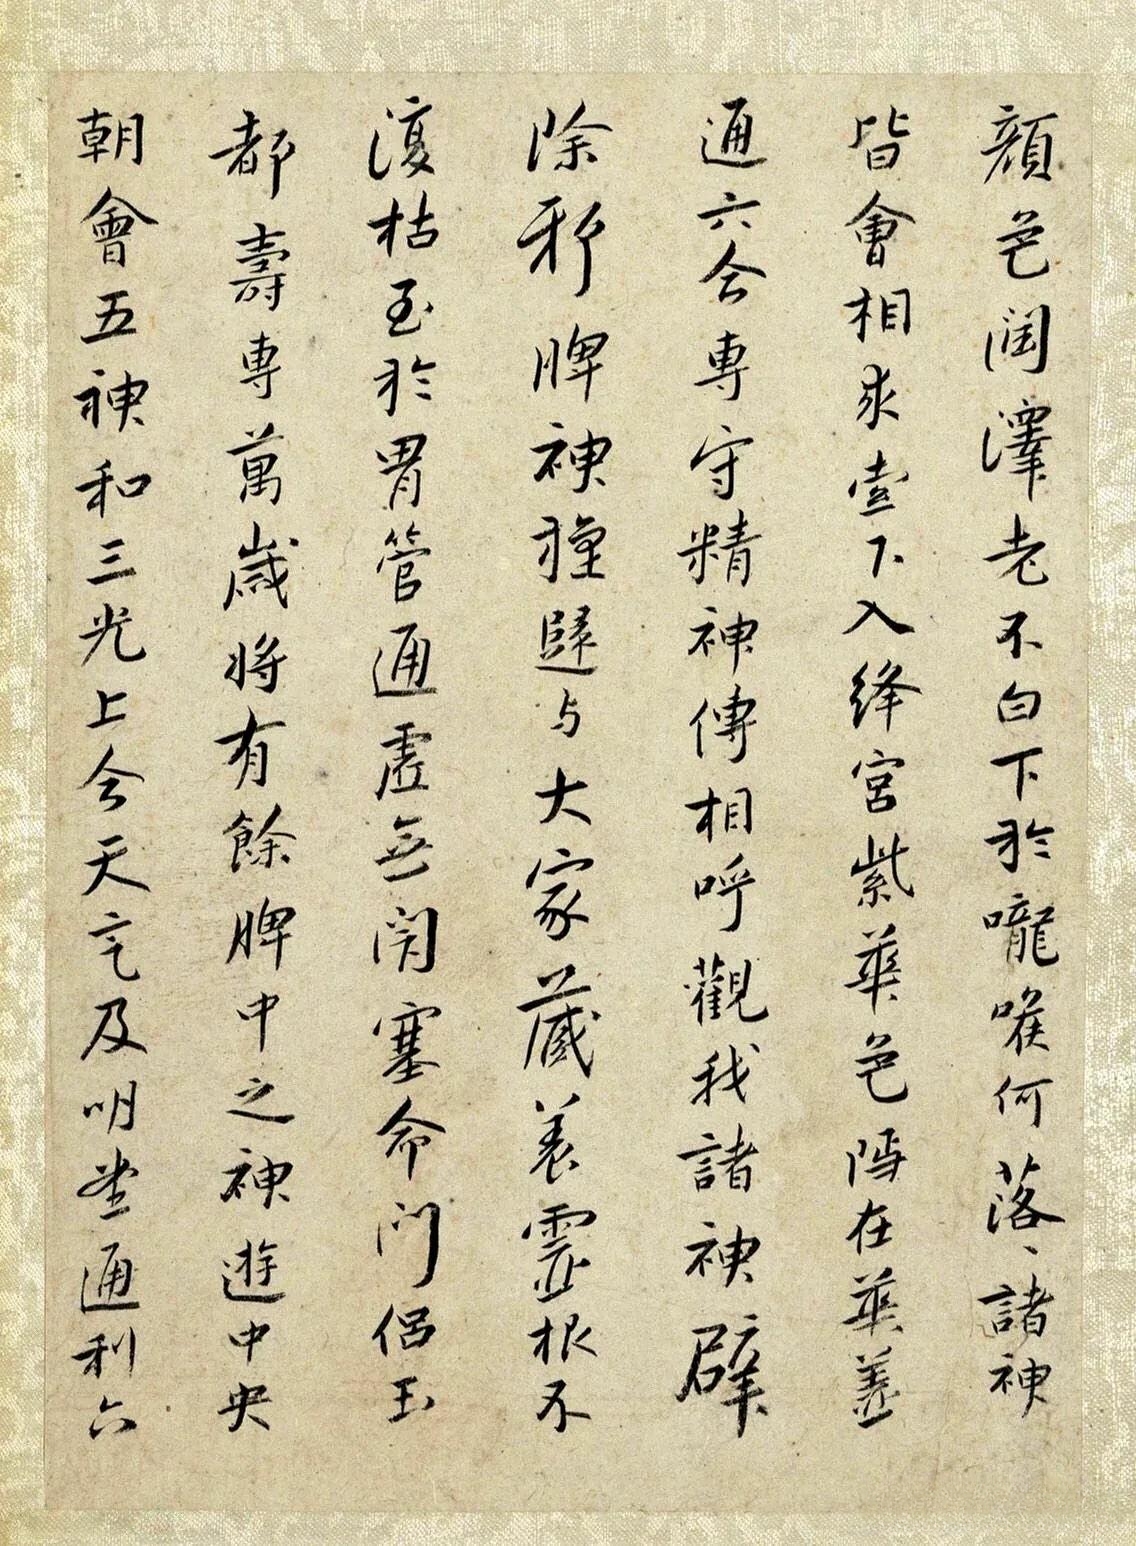 顏色潤澤老不白下於嚨喉何落〻諸神
皆會相求索下入絳宮紫華色隱在華蓋
通六合專守精神傳相呼觀我諸神辟
除邪脾神還歸与大家藏養靈根不
復枯至於胃管通虛無閉塞命門侶玉
都壽專萬歲將有餘脾中之神遊中央
朝會五神和三光上合天气及明堂通利六